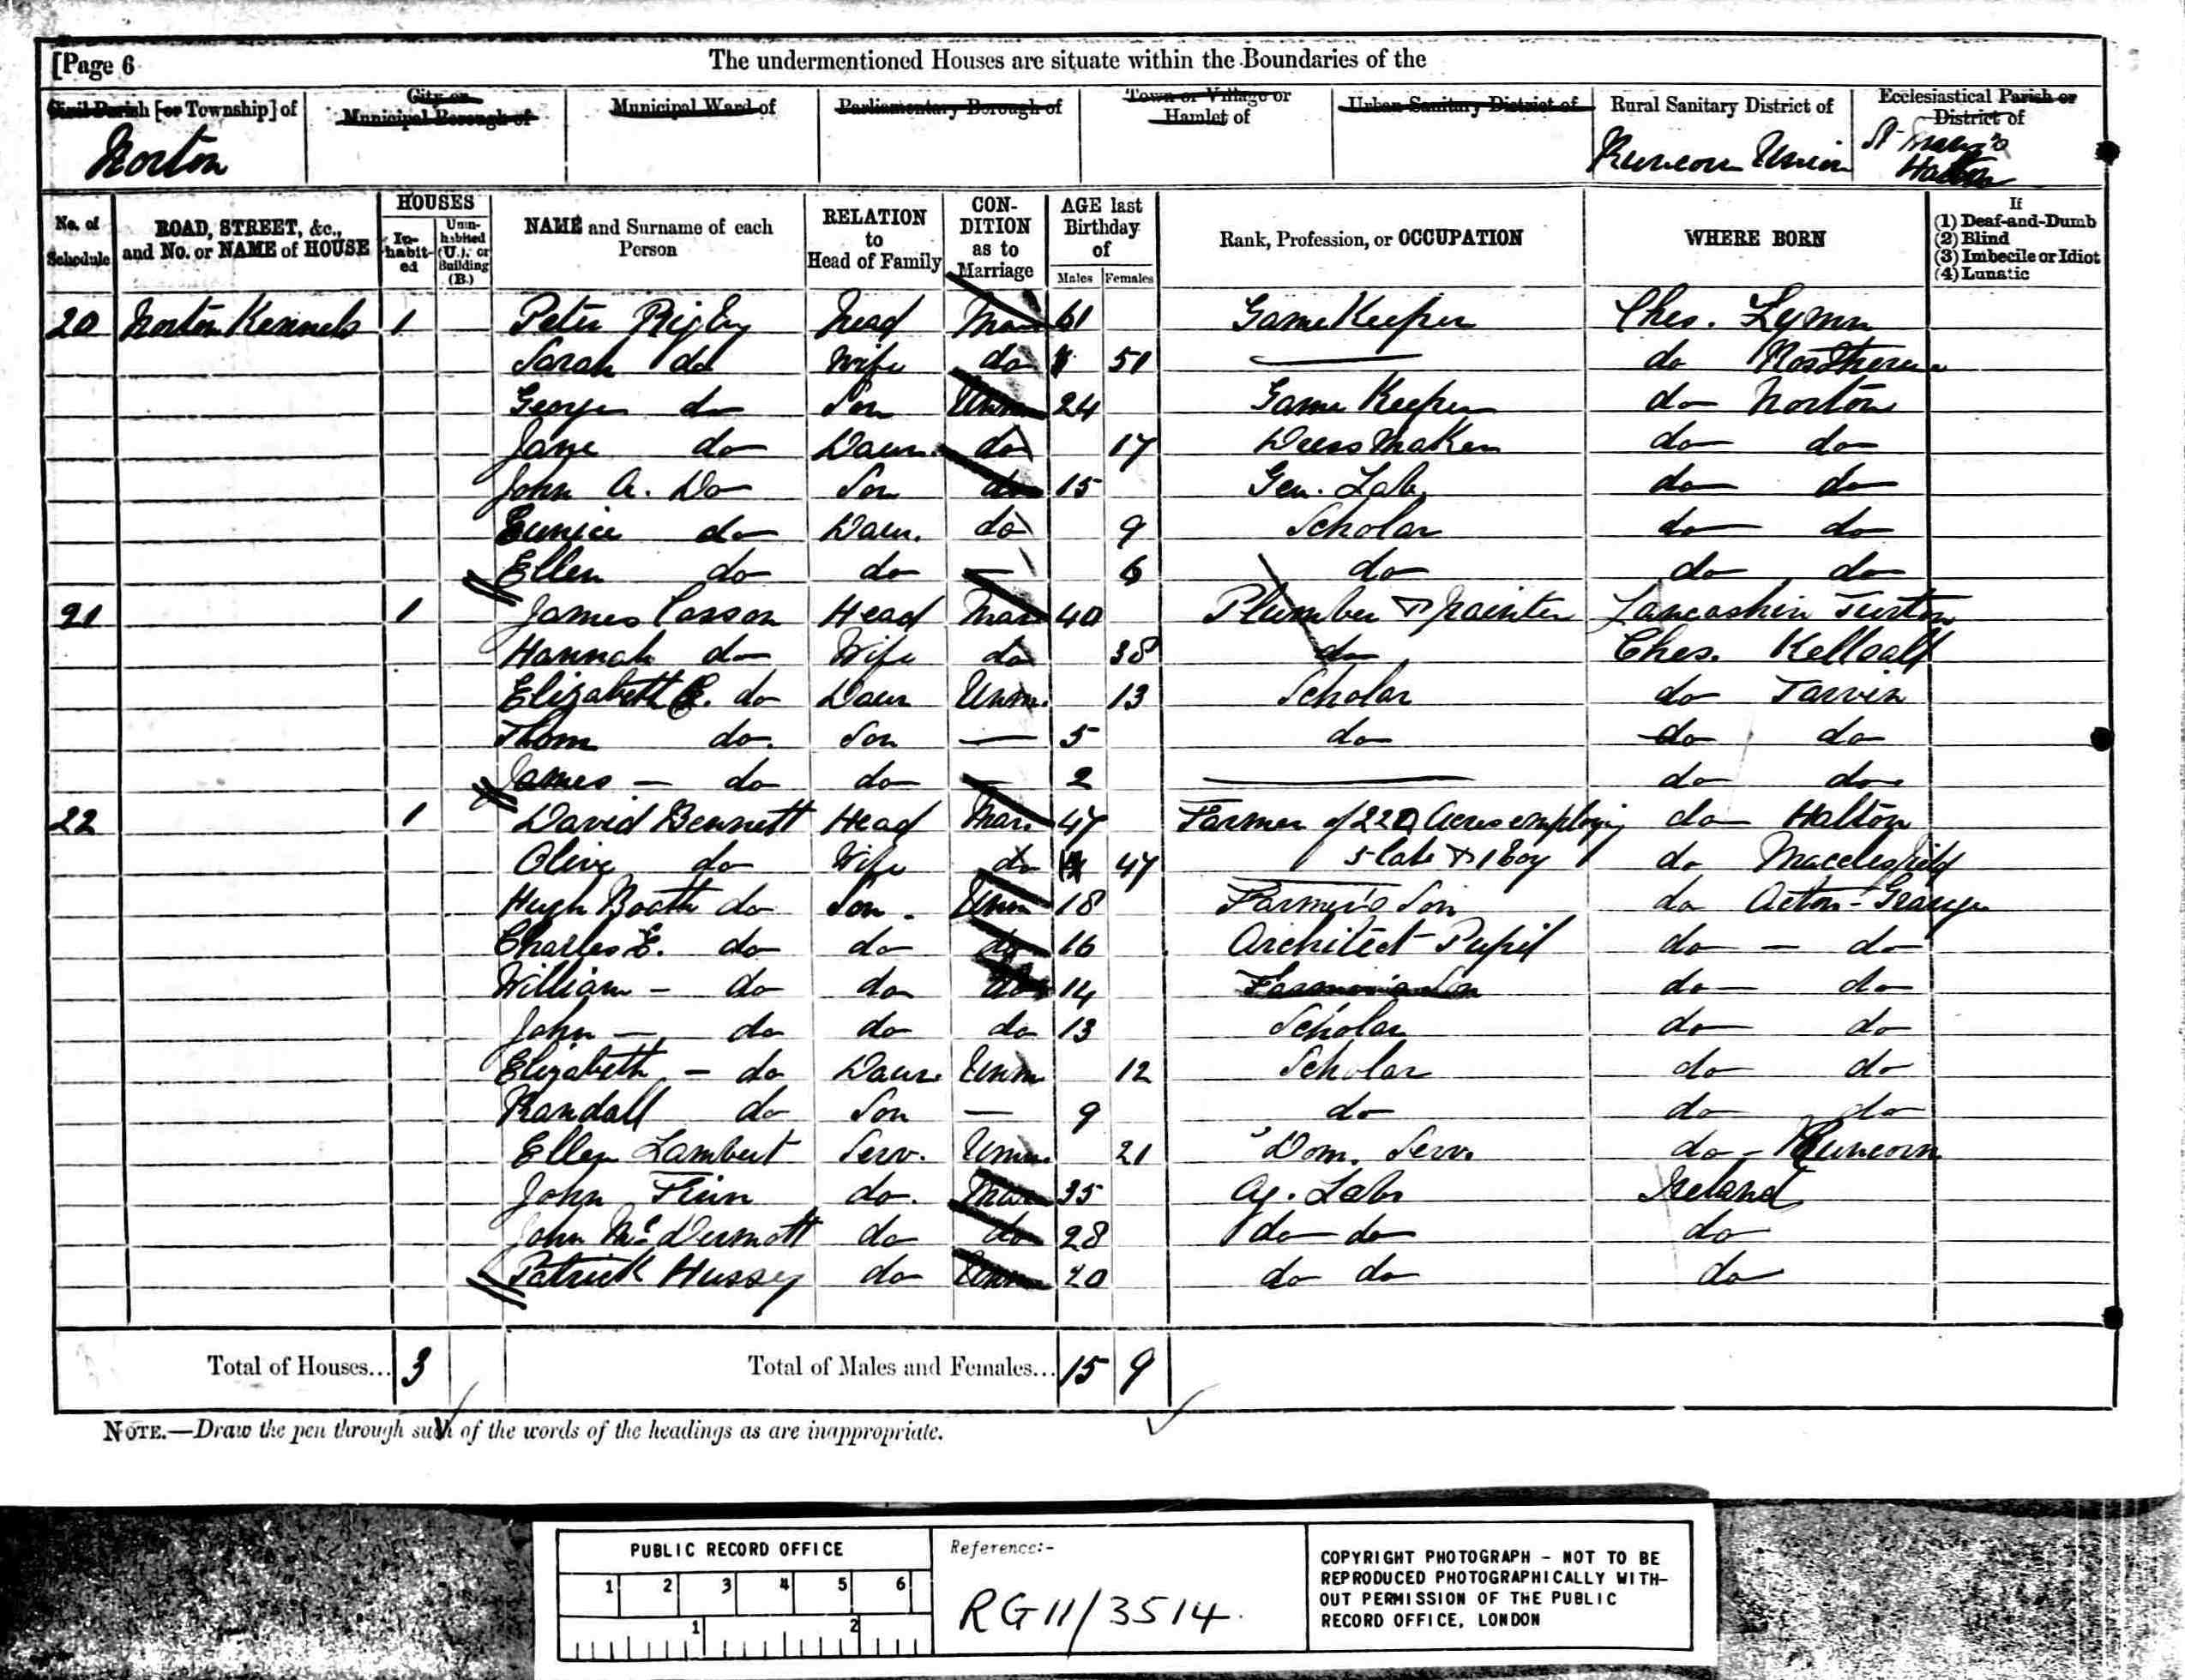 [Page 6
The undermentioned Houses are situate within the Boundaries of the
Civil Parish [or Township] of
City or Municipal Borough of
Municipal Ward of
Parliamentary Borough of
Town or Village or Hamlet of
Urban Sanitary District of
Rural Sanitary District of
Ecclesiastical Parish or District of
Norton
Runcorn Union
St Mary's Halton
No. of Schedule
ROAD, STREET, &c., and No. or NAME of HOUSE
HOUSES
In-habit-ed
Unin-habited (U.), or Building (B.)
NAME and Surname of each Person
RELATION to Head of Family
CON-DITION as to Marriage
AGE last Birthday of
Males Females
Rank, Profession, or OCCUPATION
WHERE BORN
If
(1) Deaf-and-Dumb
(2) Blind
(3) Imbecile or Idiot
(4) Lunatic
20 Norton Kennels 1 Peter Rigby Head Mar 61 Game Keeper Ches. Lymm
Sarah do Wife do 51 do Rostherne
George do Son Unm 24 Game Keeper do Norton
Jane do Daur. do 17 Dress Maker do do
John A. Do Son do 15 Gen. Lab. do do
Eunice do Daur. do 9 Scholar do do
Ellen do do — 6 do do do
21 1 James Casson Head Mar 40 Plumber & painter Lancashire Turton
Hannah do Wife do 38 do Ches. Kellsall
Elizabeth E. do Daur Unm. 13 Scholar do Tarvin
Thom do. Son — 5 do do do
James — do do — 2 — do do
22 1 David Bennett Head Mar. 47 Farmer of 220 Acres employing do Halton
Olive do Wife do 47 5 labs & 1 boy do Macclesfield
Hugh Booth do Son. Unm 18 Farmer's Son do Acton-Grange
Charles E. do do do 16 Architect Pupil do — do
William — do do do 14 Farmer's Son do do
John — do do do 13 Scholar do do
Elizabeth — do Daur. Unm 12 Scholar do do
Randall do Son — 9 do do do
Ellen Lambert Serv. Unm. 21 Dom. Serv. do - Runcorn
John Flinn do. Mar 35 Ag. Labr Ireland
John McDermott do do 28 do do do
Patrick Hussey do Unm 20 do do do
Total of Houses... 3 Total of Males and Females... 15 9
NOTE.—Draw the pen through such of the words of the headings as are inappropriate.
PUBLIC RECORD OFFICE
1 2 3 4 5 6
1 2
Reference:-
RG 11/3514
COPYRIGHT PHOTOGRAPH - NOT TO BE
REPRODUCED PHOTOGRAPHICALLY WITH-
OUT PERMISSION OF THE PUBLIC
RECORD OFFICE, LONDON